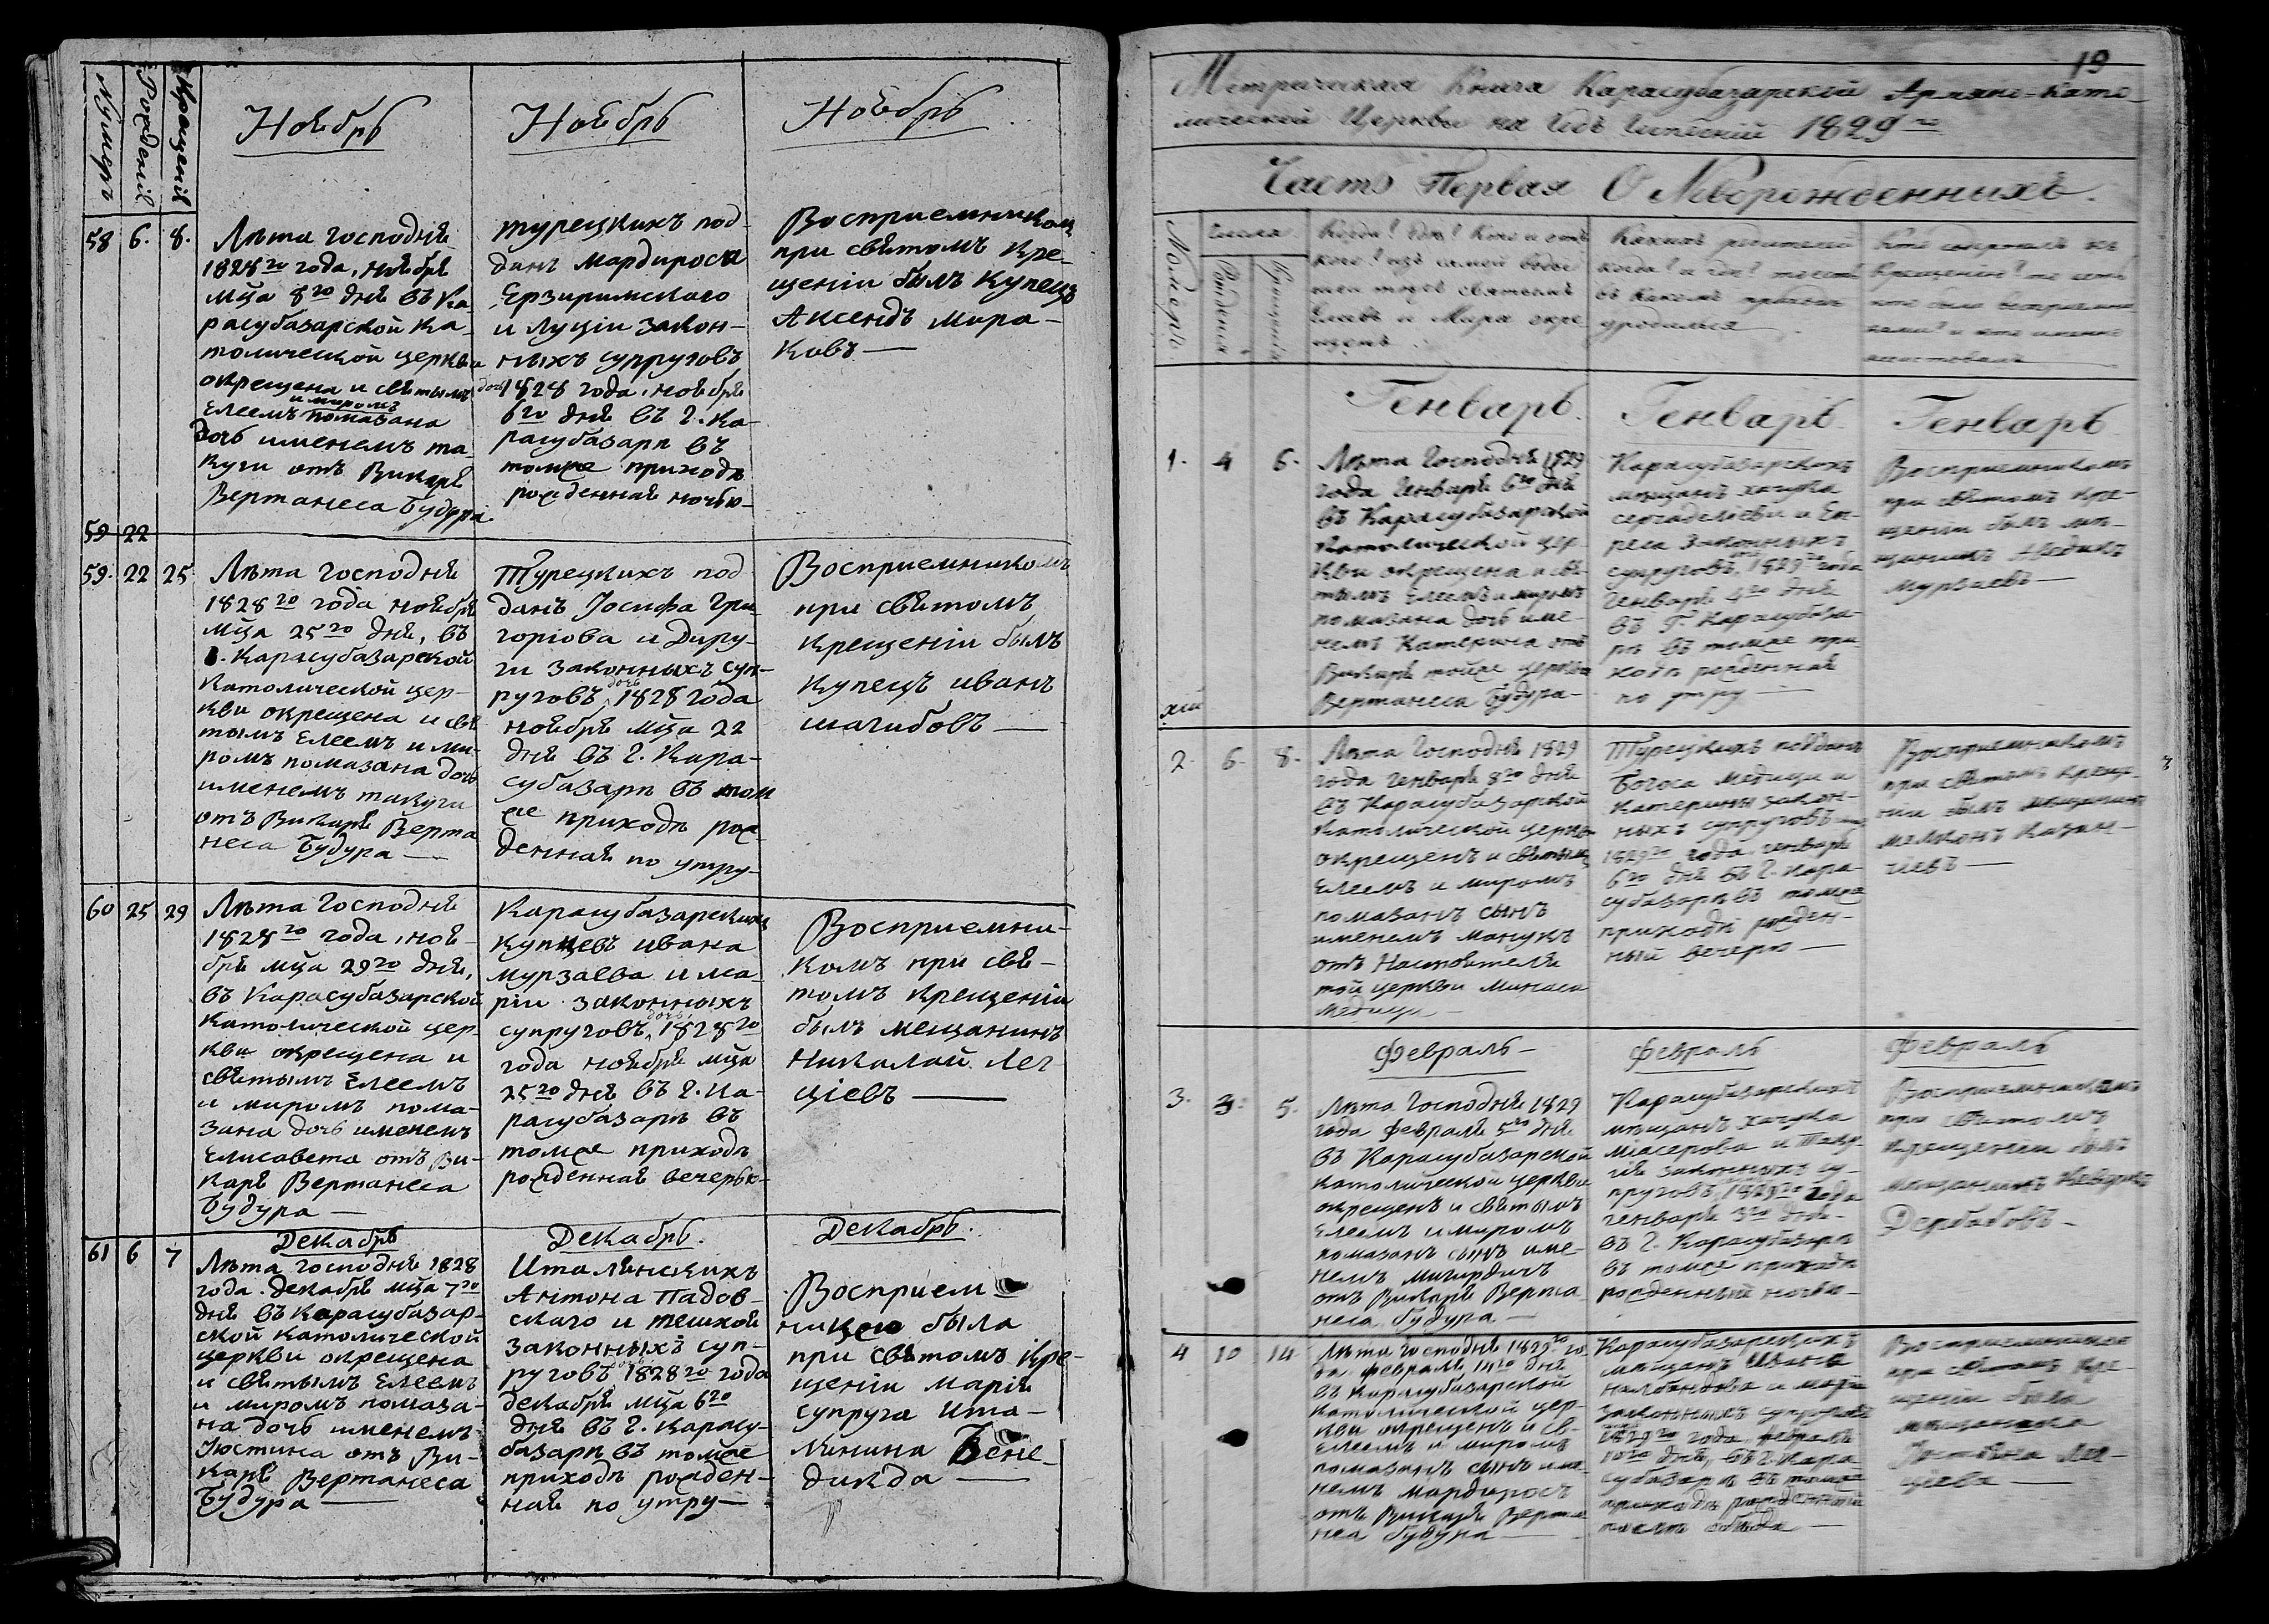 Нумеръ
Рожденій
Крещеній
Ноябрь
Ноябрь
Ноябрь
58 6. 8.
Лѣта Господня
1828го года, ноября
мца 8го дня въ Ка-
расубазарской Ка-
толической церкви
окрещена и святымъ
Елеемъ и миромъ помазана
дочь именемъ та-
куги отъ Викаря
Вертанеса Будура
турецкихъ под-
данъ Мардироса
Ерзиримскаго
и Луціи закон-
ныхъ супруговъ
дочь 1828 года, ноября
6го дня въ г. Ка-
расубазарѣ въ
томже приходѣ
рожденная ночью-
Восприемникомъ
при святомъ Кре-
щеніи былъ Купецъ
Аксендъ Мира-
ковъ —
59 22
59. 22 25
Лѣта Господня
1828го года ноября
мца 25го дня, въ
Карасубазарской
Католической цер-
кви окрещена и свя
тымъ Елеемъ и ми-
ромъ помазана дочь
именемъ такуги
отъ Викаря Верта
неса Будура —
Турецкихъ под
данъ Іосифа Гри-
горіова и Диру-
ги законныхъ суп-
руговъ, дочь 1828 года
ноября мца 22
дня въ г. Кара-
субазарѣ въ том
же приходѣ рож-
денная по утру-
Восприемникомъ
при святомъ
Крещеніи былъ
Купецъ иванъ
шагибовъ —
60 25 29
Лѣта Господня
1828го года, ноя-
бря мца 29го дня,
въ Карасубазарской
Католической цер-
кви окрещена и
святымъ Елеемъ
и миромъ пома-
зана дочь именемъ
Елисавета отъ Ви-
каря Вертанеса
Будура —
Карасубазарскихъ
Купцевъ ивана
мурзаева и ма-
ріи законныхъ
супруговъ, дочь 1828го
года ноября мца
25го дня въ г. Ка-
расубазарѣ въ
томже приходѣ
рожденная вечерью-
Восприемни-
комъ при свя-
томъ Крещеніи
былъ мещанинъ
Николай Лег
ціевъ —
Декабрь
Декабрь.
Декабрь.
61 6 7
Лѣта Господня 1828
года. декабря мца 7го
дня въ Карасубазар-
ской Католической
церкви окрещена
и святымъ Елеемъ
и миромъ помаза-
на дочь именемъ
Юстина отъ Ви-
каря Вертанеса
Будура —
Италянскихъ
Антона Падов-
скаго и тешкой
законныхъ суп-
руговъ дочь 1828го года
декабря мца 6го
дня въ г. Карасу-
базарѣ въ томже
приходѣ рожден-
ная по утру —
Восприем
ницею была
при святомъ Кре-
щеніи Марія
супруга Ита-
лянина Бене-
дикда —
19
Метрическая Книга Карасубазарской Армяно=Като-
лической Церкви на Годъ 1829го
Часть Первая О Новорожденныхъ.
Номеръ
Числа
Рожденія
Крещенія
Когда? Гдѣ? Кто и отъ
кого?
Елеемъ и Мира окре
щенъ
Какихъ родителей
когда? и гдѣ? то есть
въ какомъ приходѣ
уродился
Кто
крещенію? то есть
Генварь.
Генварь.
Генварь
1. 4 6.
Лѣта Господня 1829
года Генваря 6го дня
въ Карасубазарской
Католической цер-
кви окрещена и свя-
тымъ Елеемъ и миромъ
помазана дочь име-
немъ Катерина отъ
Викаря тойже церкви
Вертанеса Будура-
Карасубазарскихъ
мѣщанъ хачика
и Еп-
законныхъ
супруговъ, 1829го года
Генваря 4го дня
въ Г. Карасубаза-
рѣ въ томже при
ходѣ рожденная
по утру —
Восприемникомъ
при святомъ Кре-
щеніи былъ мѣ-
щанинъ Авдикъ
Мурзаевъ —
2. 6. 8.
Лѣта Господня 1829
года генваря 8го дня
въ Карасубазарской
Католической церкви
окрещенъ и святымъ
Елеемъ и миромъ
помазанъ сынъ
именемъ Манукъ
отъ Настоятеля
той церкви Минаса
Медици —
Турецкихъ подданъ
Богоса Медици и
Катерины закон-
ныхъ супруговъ
1829го года. генваря
6го дня въ г. Кара-
субазарѣ въ томже
приходѣ рожден-
ный вечерю —
Восприемникомъ
при святомъ Креще-
ніи былъ мѣщанинъ
мелконъ Казан-
гіевъ —
Февраль —
Февраль
Февраль
3. 3. 5.
Лѣта Господня 1829
года Февраля 5го дня
въ Карасубазарской
Католической церкви
окрещенъ и святымъ
Елеемъ и миромъ
помазанъ сынъ име-
немъ Мигирдичъ
отъ Викаря Верта
неса Будура —
Карасубазарскихъ
мѣщанъ хачика
и Таку-
ги законныхъ су-
пруговъ, 1829го года
генваря 3го дня-
въ г. Карасубазарѣ
въ томже приходѣ
рожденный ночью-
Восприемникомъ
при святомъ
Крещеніи былъ
мѣщанинъ Кеворкъ
Дербабовъ-
4 10 14
Лѣта Господня 1829го го
да Февраля 14го дня
въ Карасубазарской
Католической цер-
кви окрещенъ и св-
Елеемъ и миромъ
помазанъ сынъ име-
немъ мардиросъ
отъ Викаря Верта
неса Будура —
Карасубазарскихъ
мѣщанъ Ивана
налбандова и
законныхъ супруговъ
1829го года февраля
10го дня, въ г. Кара
субазарѣ въ томже
приходѣ рожденный
послѣ обѣда —
Восприемницею
при святомъ Кре-
щеніи была
мѣщанка
Юстина Лег-
ціева —